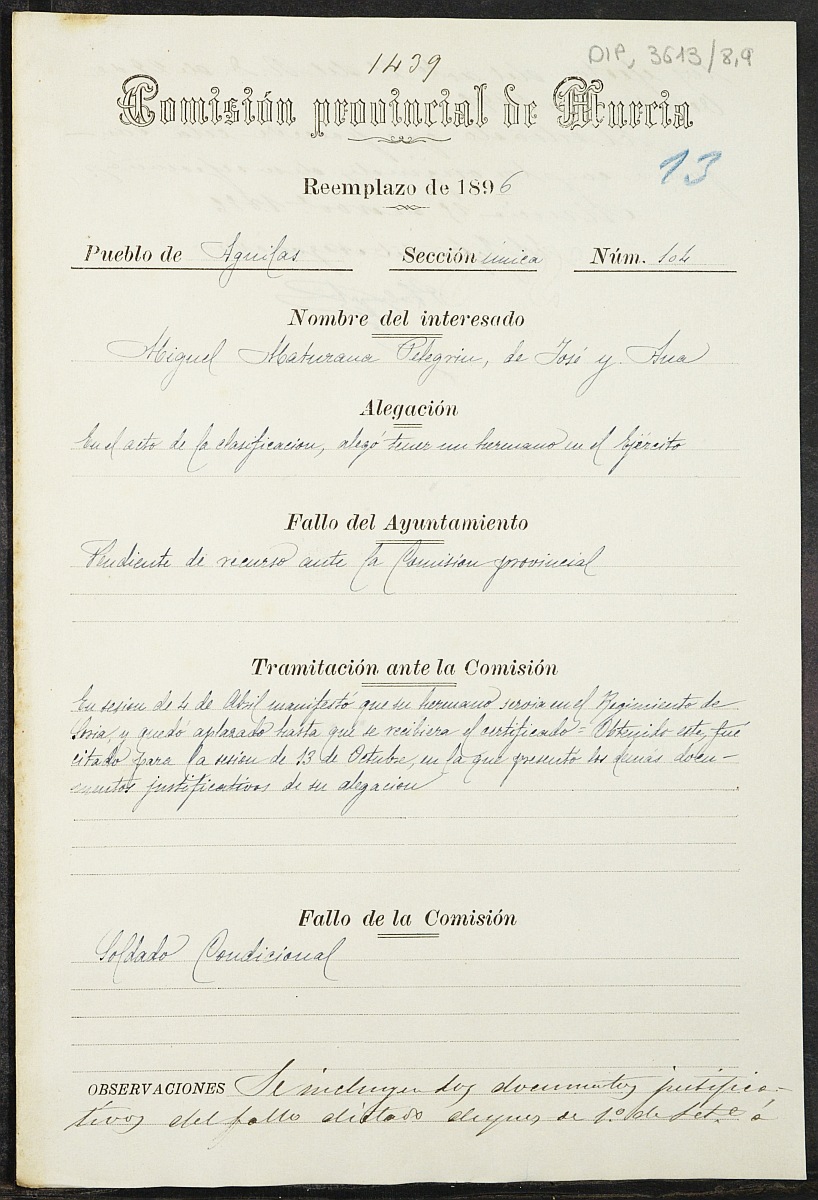 1439
DIP, 3613/8,9
Comisión provincial de Murcia
13
Reemplazo de 1896
Pueblo de Aguilas Sección única Núm. 104
Nombre del interesado
Miguel Maturana Pelegrin, de José y Ana
Alegación
En el acto de la clasificacion, alegó tener un hermano en el Ejército
Fallo del Ayuntamiento
Pendiente de recurso ante la Comision provincial
Tramitación ante la Comisión
En sesion de 4 de Abril manifestó que su hermano servia en el Regimiento de
Soria, y quedó aplazado hasta que se recibiera el certificado = Obtenido este, fué
citado para la sesion de 13 de Octubre, en la que presentó los demás docu-
mentos justificativos de su alegacion
Fallo de la Comisión
Soldado Condicional
OBSERVACIONES Se incluyen dos documentos justifica-
tivos del fallo dictado despues de 1º de Set.e á